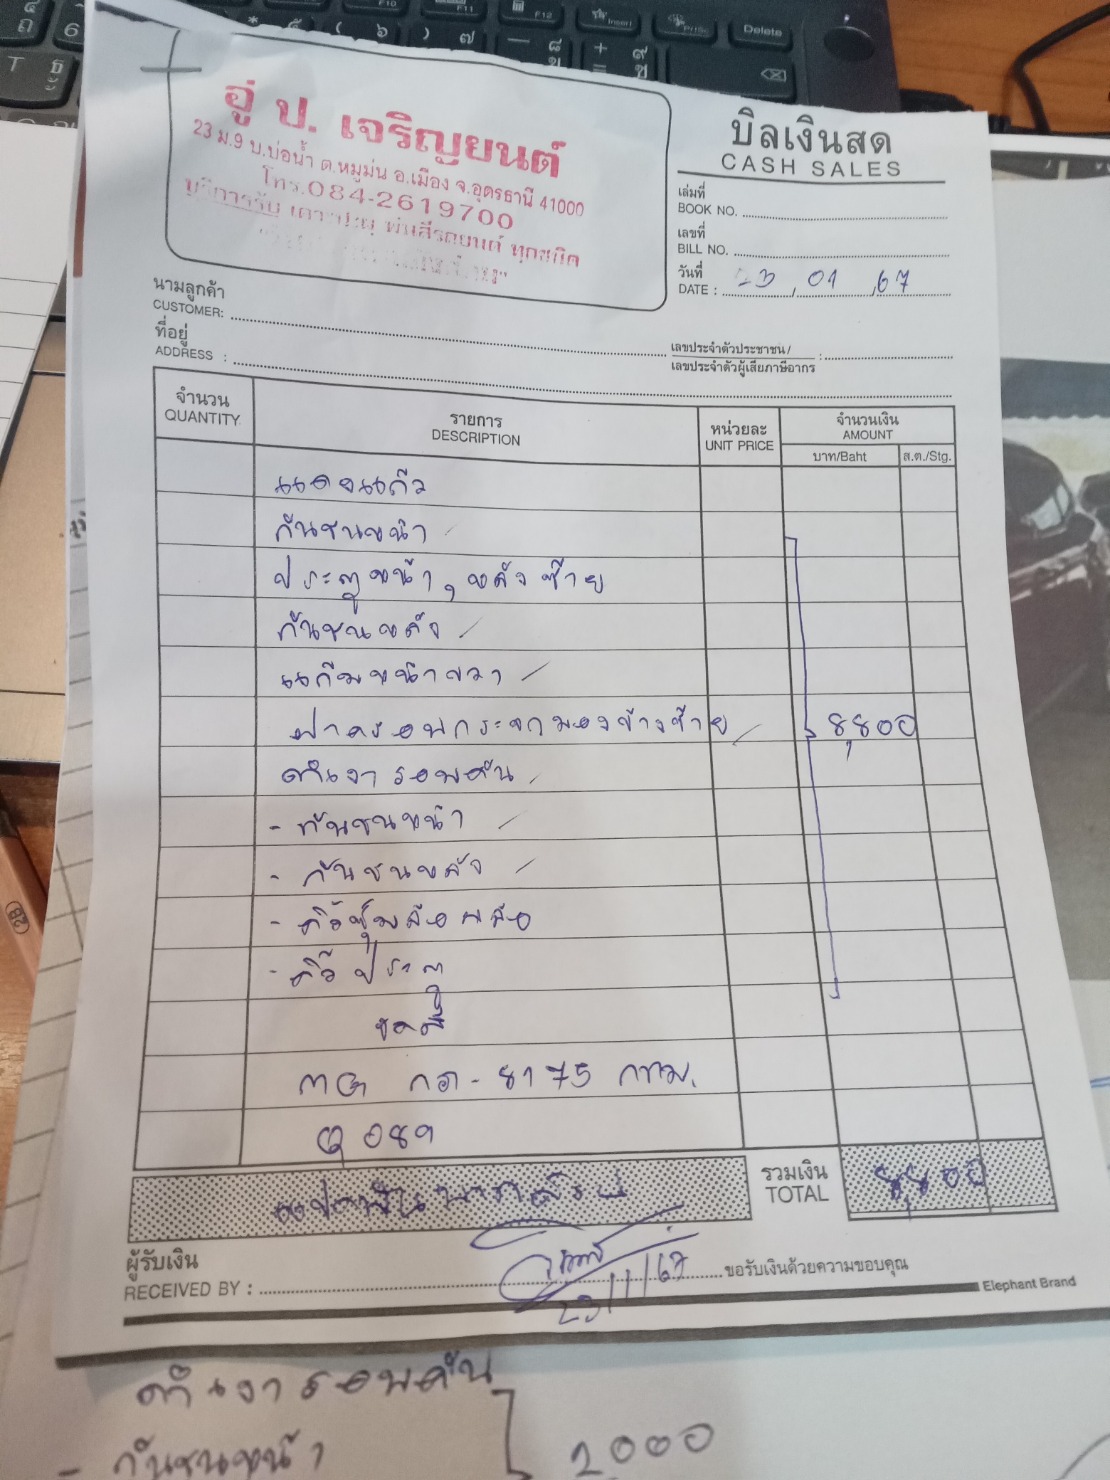 อู่ ป. เจริญยนต์
23 ม.9 บ.บ่อน้ำ ต.หมูม่น อ.เมือง จ.อุดรธานี 41000
โทร.084-2619700
บริการรับ เคาะปะผุ พ่นสีรถยนต์ ทุกชนิด
บิลเงินสด
CASH SALES
เล่มที่
BOOK NO.
เลขที่
BILL NO.
วันที่
DATE : 23, 01, 67
นามลูกค้า
CUSTOMER:
ที่อยู่
ADDRESS :
เลขประจำตัวประชาชน/
เลขประจำตัวผู้เสียภาษีอากร :
จำนวน
QUANTITY
รายการ
DESCRIPTION
หน่วยละ
UNIT PRICE
จำนวนเงิน
AMOUNT
บาท/Baht
ส.ต./Stg.
กันชนหน้า
ประตูหน้า, หลังซ้าย
กันชนหลัง
แก้มหน้าขวา
ฝาครอบกระจกมองข้างซ้าย 8,800
ดำเงารอบคัน
- กันชนหน้า
- กันชนหลัง
- คิ้วซุ้มล้อ
- คิ้วประตู
MG 8175 กทม.
รวมเงิน
TOTAL 8,800
แปดพันแปดร้อย
ผู้รับเงิน
RECEIVED BY : 23/1/67 ขอรับเงินด้วยความขอบคุณ
Elephant Brand
ดำเงารอบคัน
- กันชนหน้า
2000
F10
F11
F12
Insert
PrtSc
Delete
2B